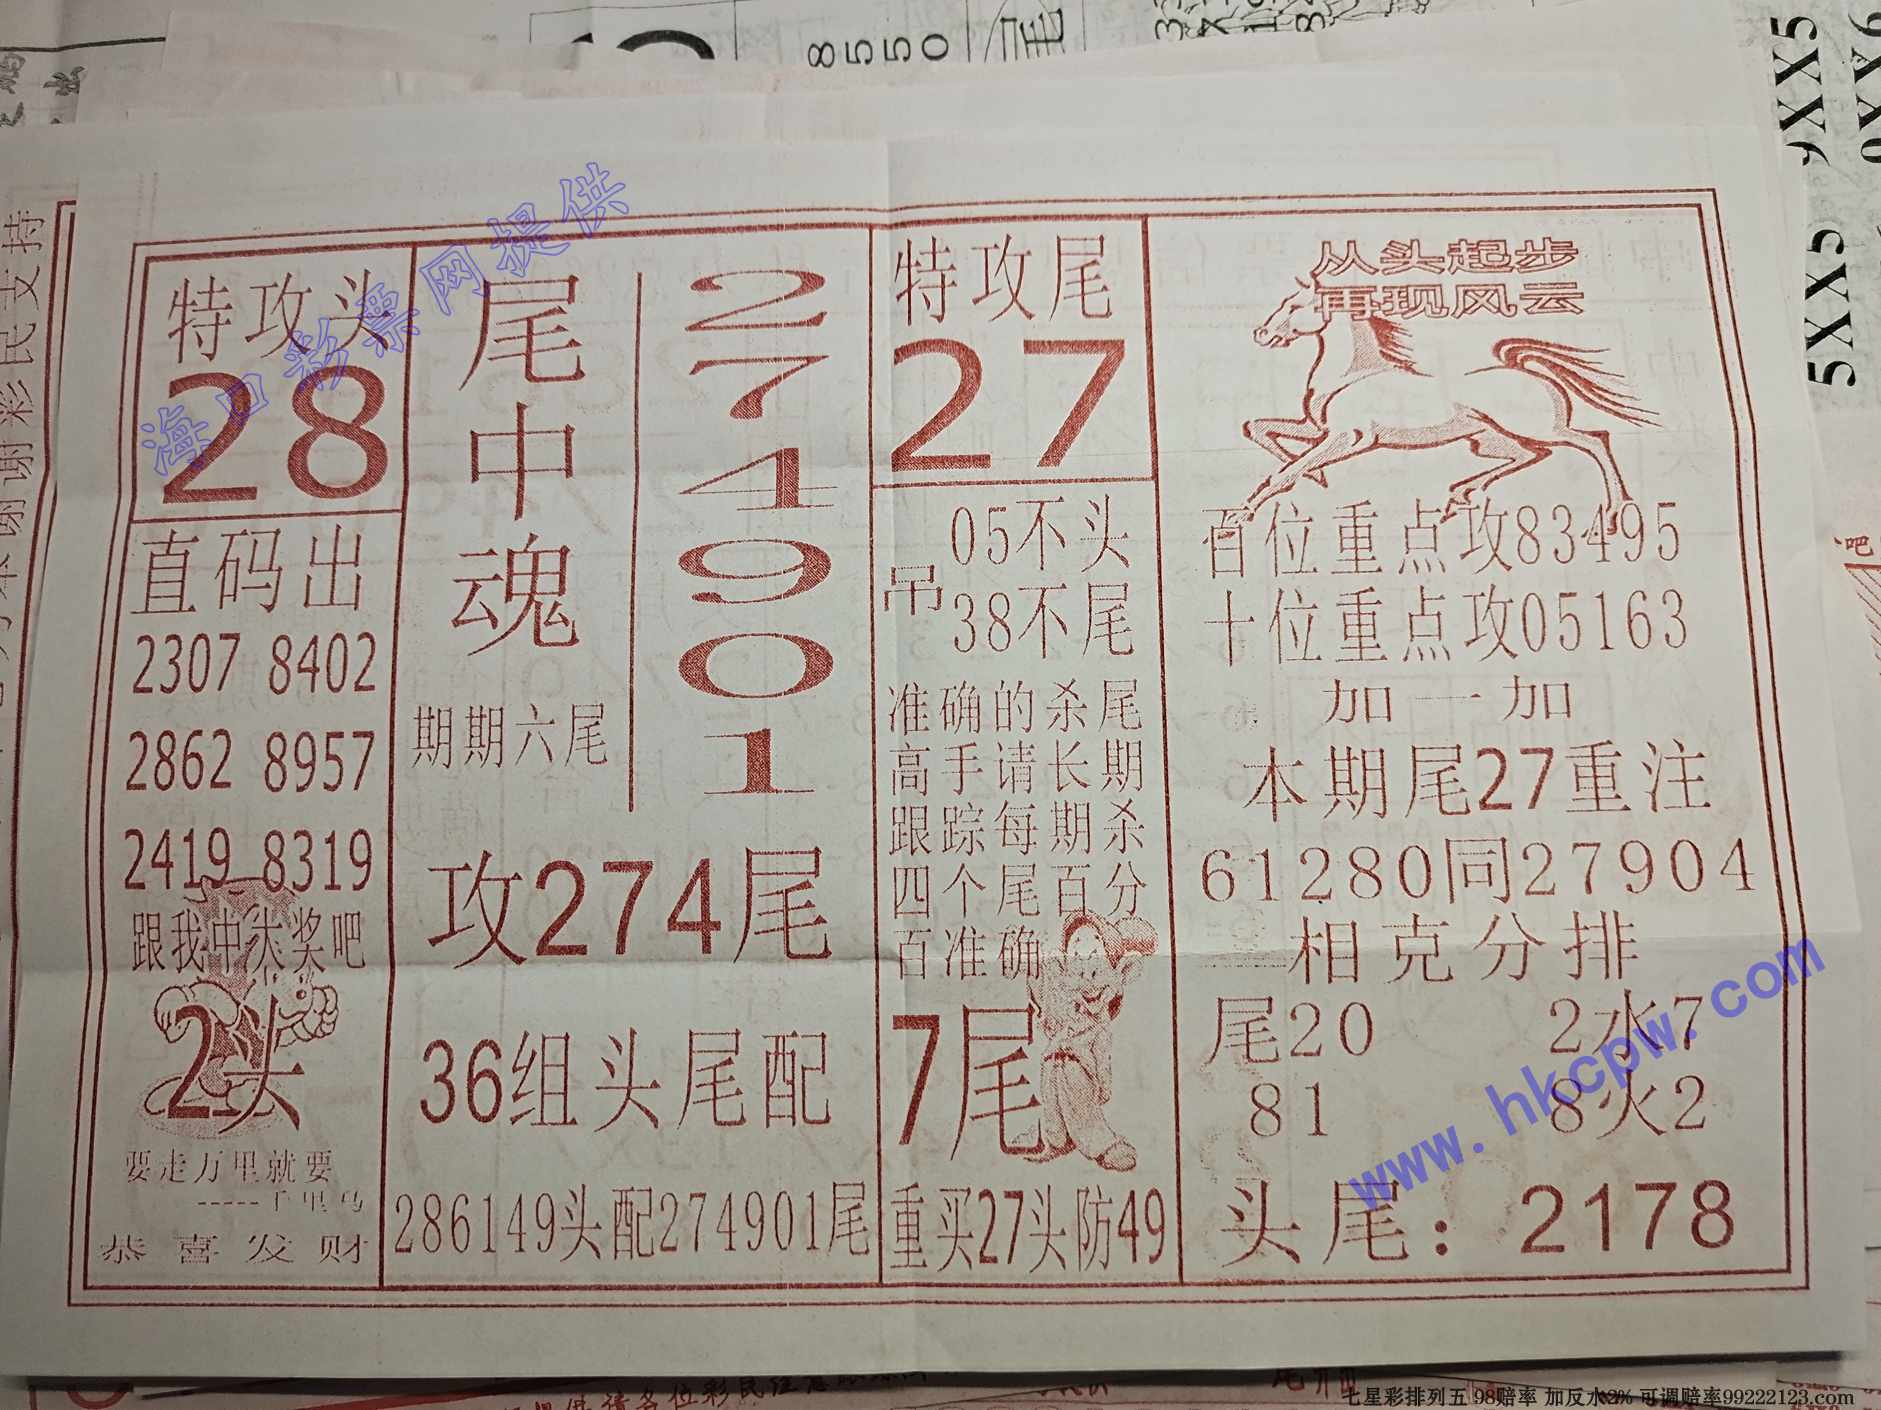 特攻头
28
直码出
2307 8402
2862 8957
2419 8319
跟我中大奖吧
2头
要走万里就要
-----千里马
恭喜发财
尾中魂
274901
期期六尾
攻274尾
36组头尾配
286149头配274901尾
特攻尾
27
吊
05不头
38不尾
准确的杀尾
高手请长期
跟踪每期杀
四个尾百分
百准确
7尾
重买27头防49
从头起步
再现风云
百位重点攻83495
十位重点攻05163
加一加
本期尾27重注
61280同27904
相克分排
尾20 2水7
81 8火2
头尾：2178
海口彩票网提供
www.hkcpw.com
8550
尾
5XX5
谢谢彩民支持
吧
七星彩排列五 98赔率 加反水2% 可调赔率99222123.com